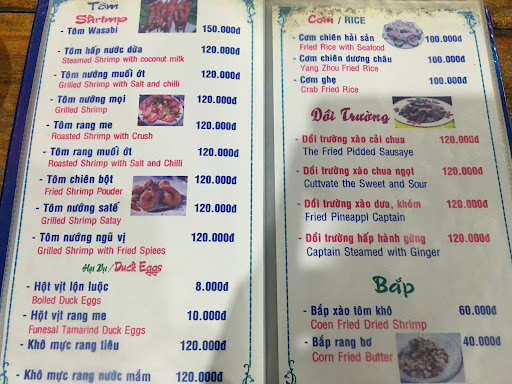 Tôm
Shrimp
- Tôm Wasabi 150.000đ
- Tôm hấp nước dừa 120.000đ
Steamed Shrimp with coconut milk
- Tôm nướng muối ớt 120.000đ
Grilled Shrimp with Salt and chilli
- Tôm nướng mọi 120.000đ
Grilled Shrimp
- Tôm rang me 120.000đ
Roasted Shrimp with Crush
- Tôm rang muối ớt 120.000đ
Roasted Shrimp with Salt and Chilli
- Tôm chiên bột 120.000đ
Fried Shrimp Pouder
- Tôm nướng satế 120.000đ
Grilled Shrimp Satay
- Tôm nướng ngũ vị 120.000đ
Grilled Shrimp with Fried Spiees
Hột Vịt / Duck Eggs
- Hột vịt lộn luộc 8.000đ
Boiled Duck Eggs
- Hột vịt rang me 10.000đ
Funesal Tamarind Duck Eggs
- Khô mực rang tiêu 120.000đ
- Khô mực rang nước mắm 120.000đ
Cơm / RICE
Cơm chiên hải sản 100.000đ
Fried Rice with Seafood
Cơm chiên dương châu 100.000đ
Yang Zhou Fried Rice
Cơm ghẹ 100.000đ
Crab Fried Rice
Dồi Trường
- Dồi trường xào cải chua 120.000đ
The Fried Pidded Sausaye
- Dồi trường xào chua ngọt 120.000đ
Cuttvate the Sweet and Sour
- Dồi trường xào dưa, khóm 120.000đ
Fried Pineappi Captain
- Dồi trường hấp hành gừng 120.000đ
Captain Steamed with Ginger
Bắp
- Bắp xào tôm khô 60.000đ
Coen Fried Dried Shrimp
- Bắp rang bơ 40.000đ
Corn Fried Butter